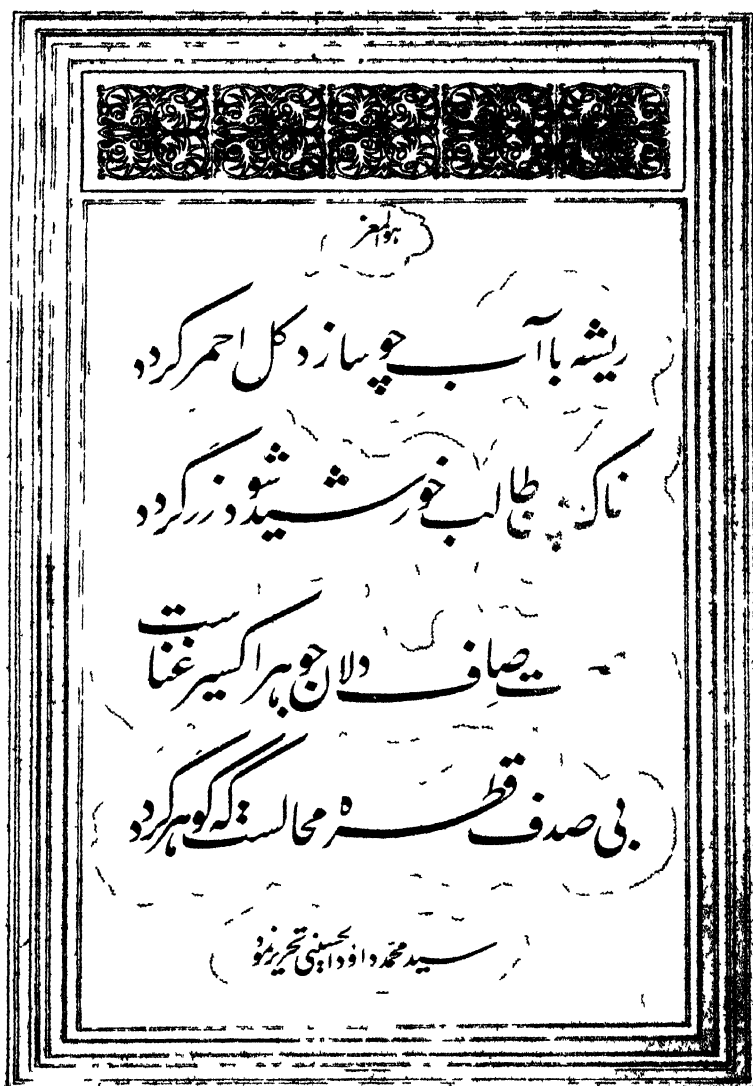 هوالمعز
ریشه با آب چو سازد کل احمر کردد
خاک طالب خورشید شود زر کردد
صاف دلان جوهر اکسیر غناست
بی صدف قطره محالست که کوهر کردد
سید محمد داود الحسینی تحریر نمود